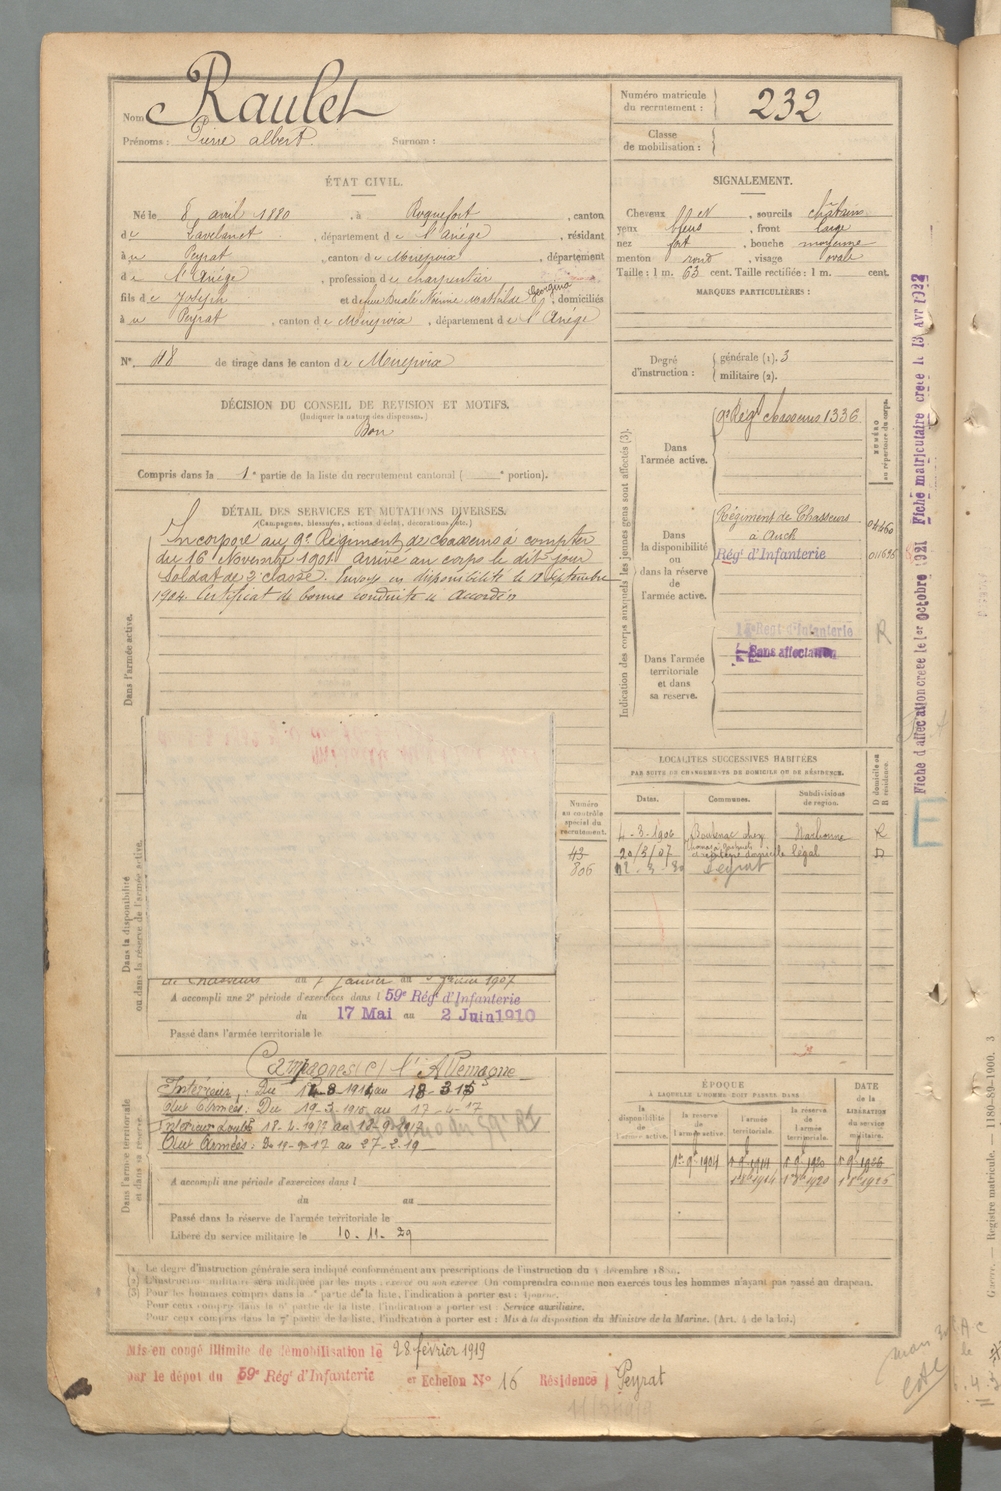 Nom Raulet
Prénoms : Pierre albert. Surnom :
Numéro matricule du recrutement : 232
Classe de mobilisation :
ÉTAT CIVIL.
Né le 8 avril 1880, à Roquefort, canton
de Lavelanet, département de l'Ariège, résidant
à Peyrat, canton de Mirepoix, département
de l'Ariège, profession de charpentier
fils de Joseph et de feue Mathilde Georgina, domiciliés
à Peyrat, canton de Mirepoix, département de l'Ariège
N° 118 de tirage dans le canton de Mirepoix
DÉCISION DU CONSEIL DE RÉVISION ET MOTIFS.
(Indiquer la nature des dispenses.)
Bon
Compris dans la 1e partie de la liste du recrutement cantonal ( e portion).
SIGNALEMENT.
Cheveux , sourcils châtains
yeux bleus, front large
nez fort, bouche moyenne
menton rond, visage ovale
Taille : 1 m. 63 cent. Taille rectifiée : 1 m. cent.
MARQUES PARTICULIÈRES :
Degré d'instruction : générale (1). 3
militaire (2).
DÉTAIL DES SERVICES ET MUTATIONS DIVERSES.
(Campagnes, blessures, actions d'éclat, décorations, etc.)
Incorporé au 9e Régiment de chasseurs à compter
du 16 Novembre 1901 Arrivé au corps le dit jour
soldat de 2e classe. Envoyé en disponibilité le 18 Septembre
1904. Certificat de bonne conduite " Accordé "
Dans l'armée active.
Dans la disponibilité ou dans la réserve de l'armée active.
Numéro au contrôle spécial du recrutement.
43
806
de Chasseurs du 7 janvier au janvier 1907
A accompli une 2e période d'exercices dans l 59e Régt d'Infanterie
du 17 Mai au 2 Juin 1910
Passé dans l'armée territoriale le
Dans l'armée territoriale et dans sa réserve.
Campagnes (c) l'Allemagne
Intérieur : Du 12-8-1914 au 18-3-15
Aux Armées : Du 19-3-1915 au 17-4-17
Intérieur 18-4-1917 au 18-9-1917
Aux Armées : Du 19-9-17 au 27-2-19
A accompli une période d'exercices dans l
du au
Passé dans la réserve de l'armée territoriale le
Libéré du service militaire le 10-11-29
Indication des corps auxquels les jeunes gens sont affectés (3).
NUMÉRO au répertoire du corps.
Dans l'armée active.
9e Régt chasseurs 1336
Dans la disponibilité ou dans la réserve de l'armée active.
Régiment de Chasseurs
à Auch
Régt d'Infanterie
Dans l'armée territoriale et dans sa réserve.
Régt d'Infanterie R
Sans affectation
LOCALITÉS SUCCESSIVES HABITÉES
PAR SUITE DE CHANGEMENTS DE DOMICILE OU DE RÉSIDENCE.
Dates. Communes. Subdivisions de région. D domicile ou R résidence.
4-3-1906 Narbonne R
20/3/07 domicile légal D
Peyrat
ÉPOQUE
À LAQUELLE L'HOMME DOIT PASSER DANS
la disponibilité de l'armée active. la réserve de l'armée active. l'armée territoriale. la réserve de l'armée territoriale.
DATE de la LIBÉRATION du service militaire.
1904 1914 1920 1926
1914 1920
(1) Le degré d'instruction générale sera indiqué conformément aux prescriptions de l'instruction du
(2) L'instruction militaire sera indiquée par les mots : exercé ou non exercé. On comprendra comme non exercés tous les hommes n'ayant pas passé au drapeau.
(3) Pour les hommes compris dans la partie de la liste, l'indication à porter est :
Pour ceux compris dans la partie de la liste, l'indication à porter est : Service auxiliaire.
Pour ceux compris dans la 7e partie de la liste, l'indication à porter est : Mis à la disposition du Ministre de la Marine. (Art. 4 de la loi.)
Mis en congé illimité de démobilisation le 28 février 1919
par le dépôt du 59e Régt d'Infanterie er Echelon N° 16 Résidence Peyrat
Fiche d'affectation créée le 1er Octobre 1921 Fiche matriculaire créée le 13 Avr 1922
E
Guerre. — Registre matricule. — 1180-89-1900. 3